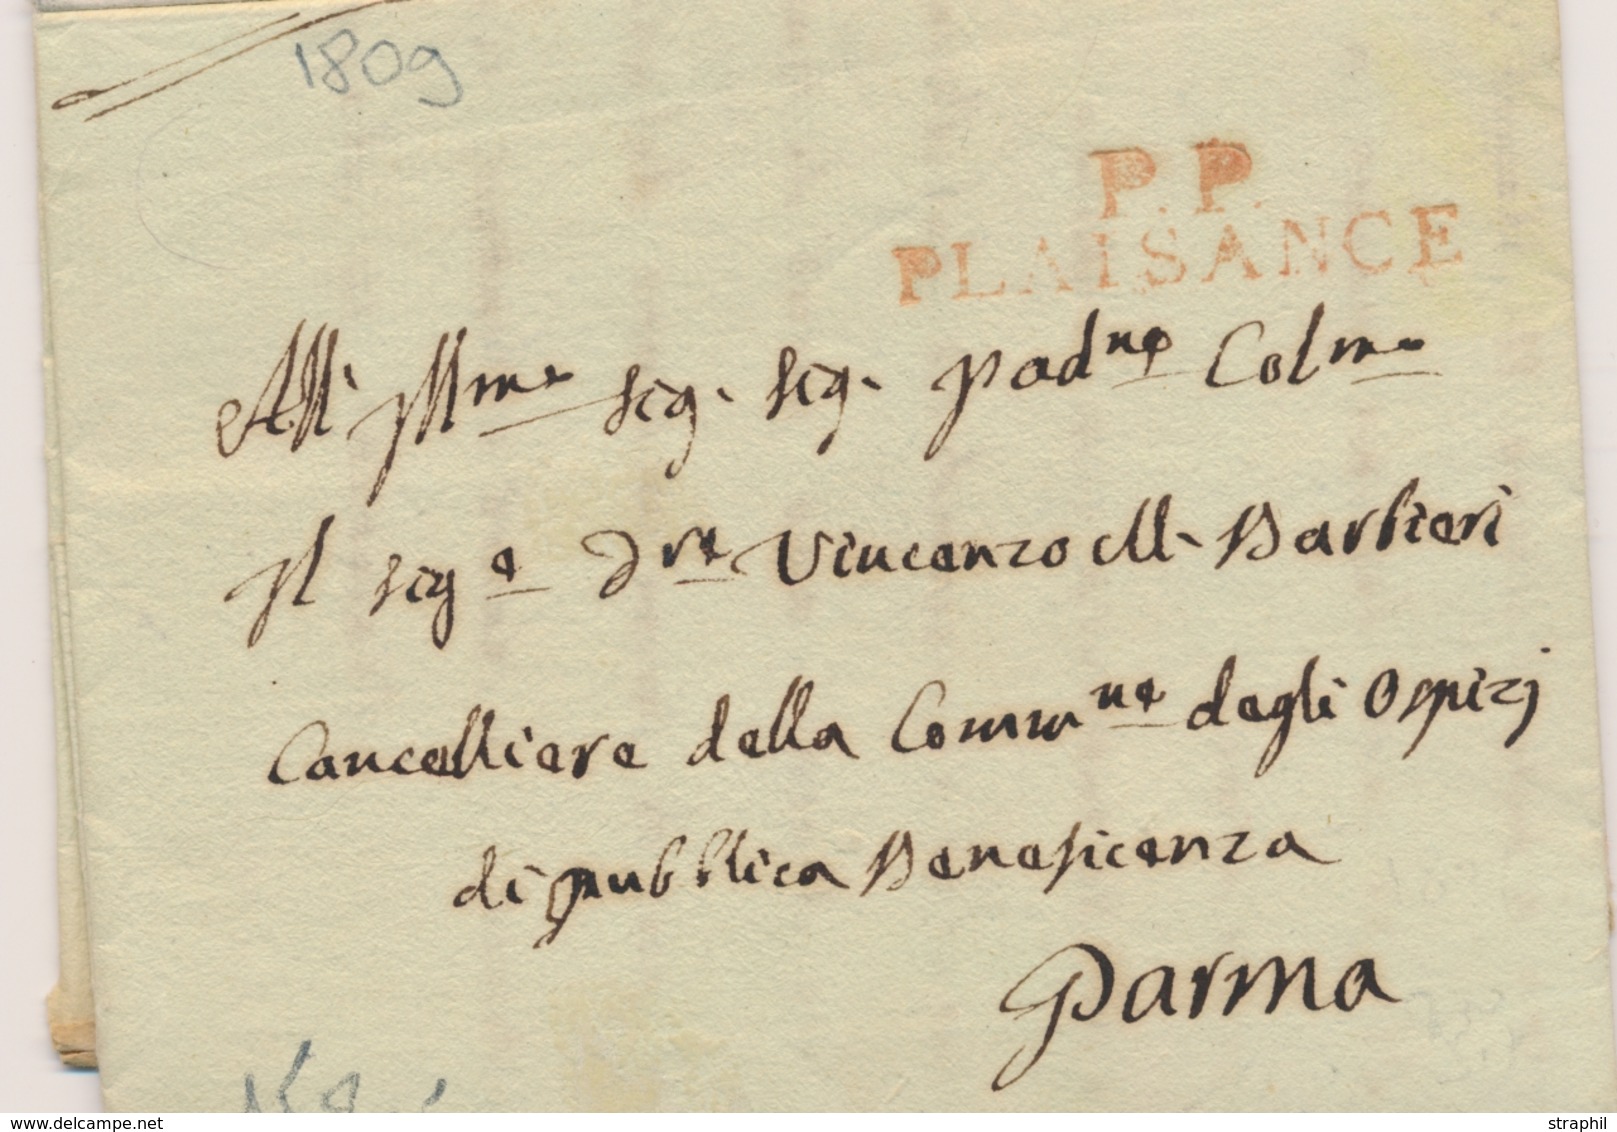 1809
P. P.
PLAISANCE
All' Ill.mo sig. sig. Pad.ne Col.mo
Il sig.e D.re Vincenzo M. Barbieri
Cancelliere della Comm.ne degli Ospizj
di pubblica Beneficenza
Parma
www.delcampe.net
straphil